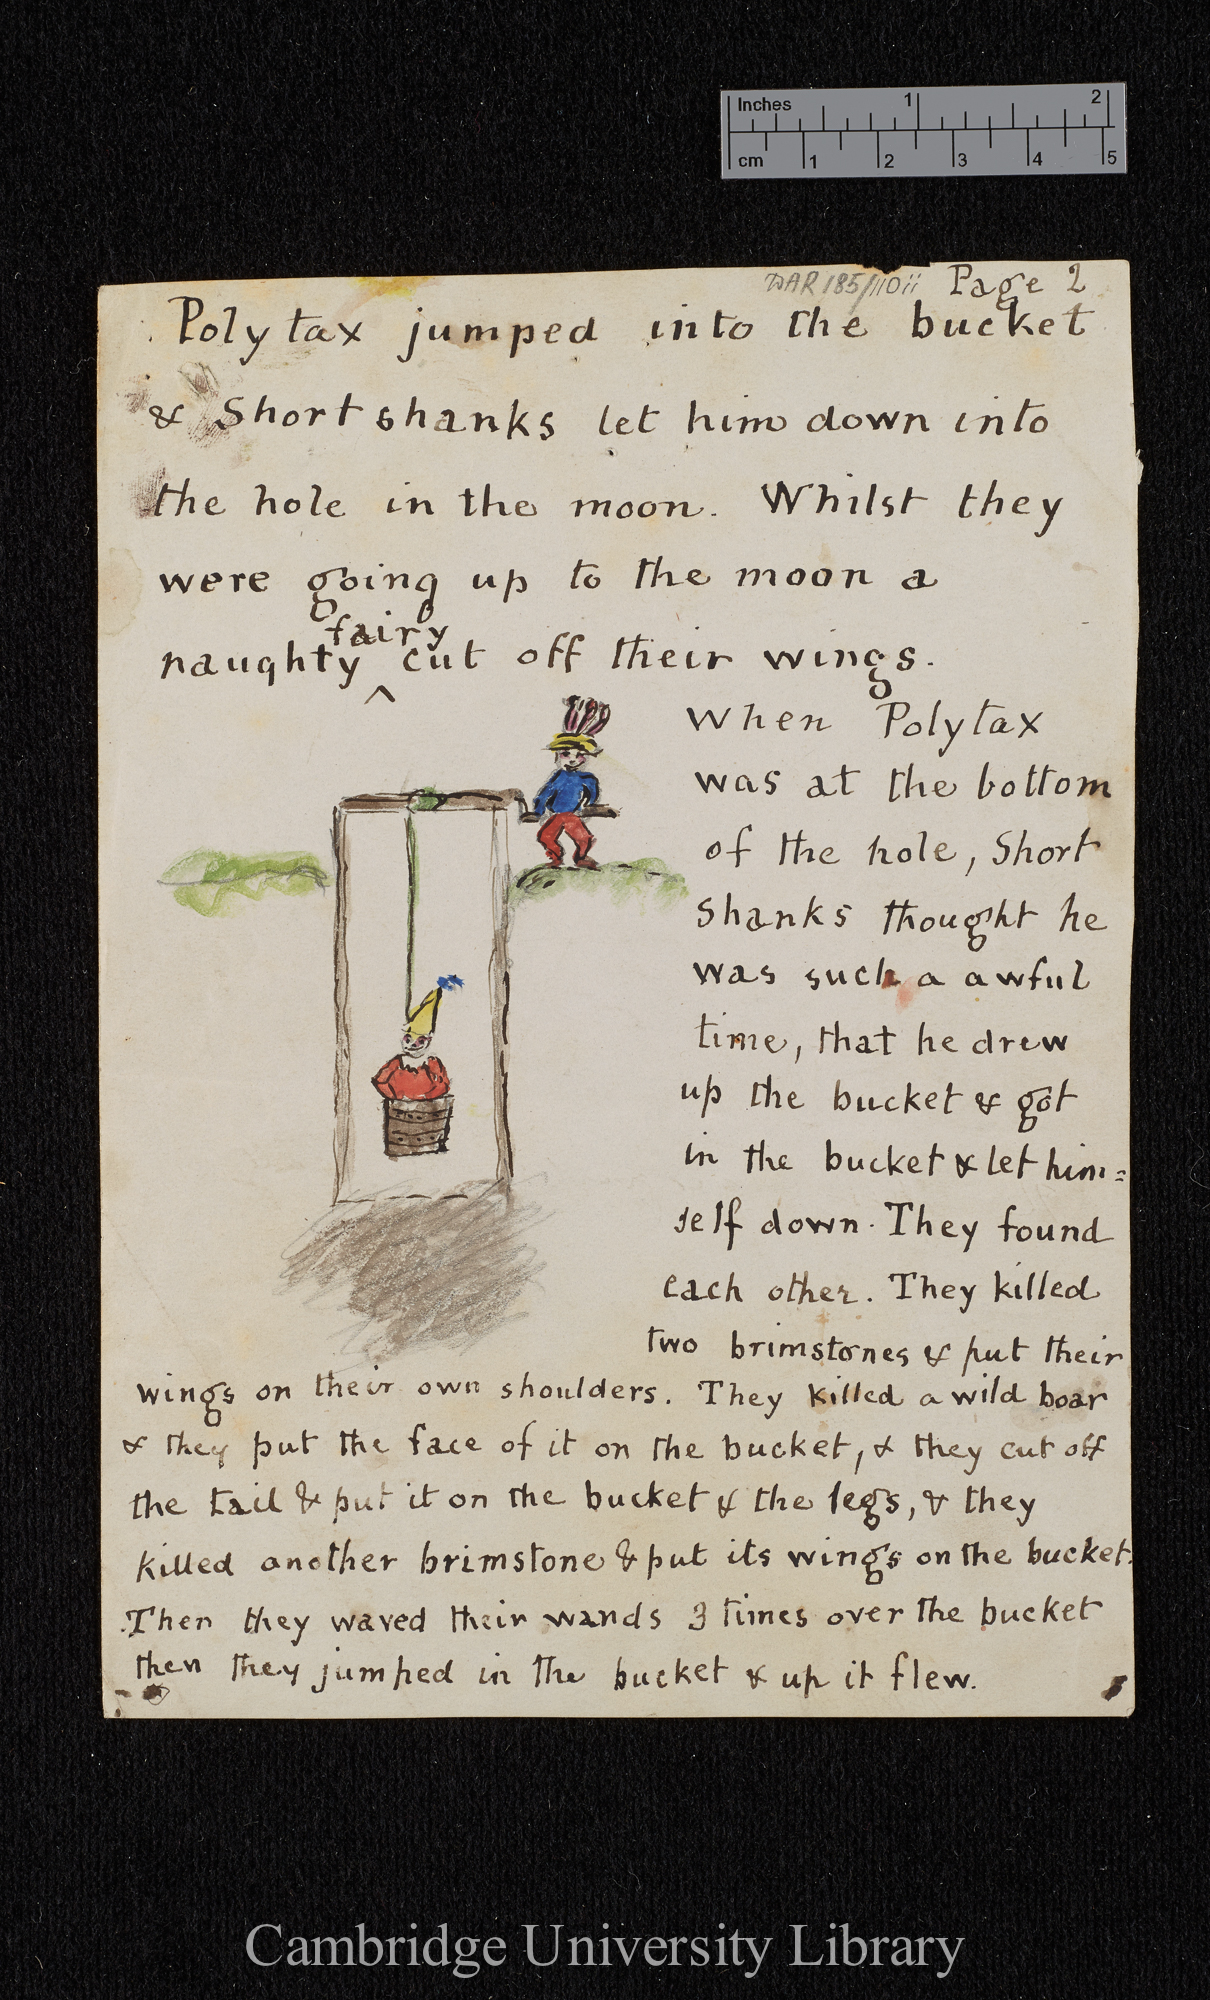 Inches 1 2
cm 1 2 3 4 5
DAR 185/110ii Page 2
Polytax jumped into the bucket
& Shortshanks let him down into
the hole in the moon. Whilst they
were going up to the moon a
fairy
naughty ^ cut off their wings.
When Polytax
was at the bottom
of the hole, Short
shanks thought he
was such a awful
time, that he drew
up the bucket & got
in the bucket & let him=
self down. They found
each other. They killed
two brimstones & put their
wings on their own shoulders. They killed a wild boar
& they put the face of it on the bucket, & they cut off
the tail & put it on the bucket & the legs, & they
killed another brimstone & put its wings on the bucket.
Then they waved their wands 3 times over the bucket
then they jumped in the bucket & up it flew.
Cambridge University Library